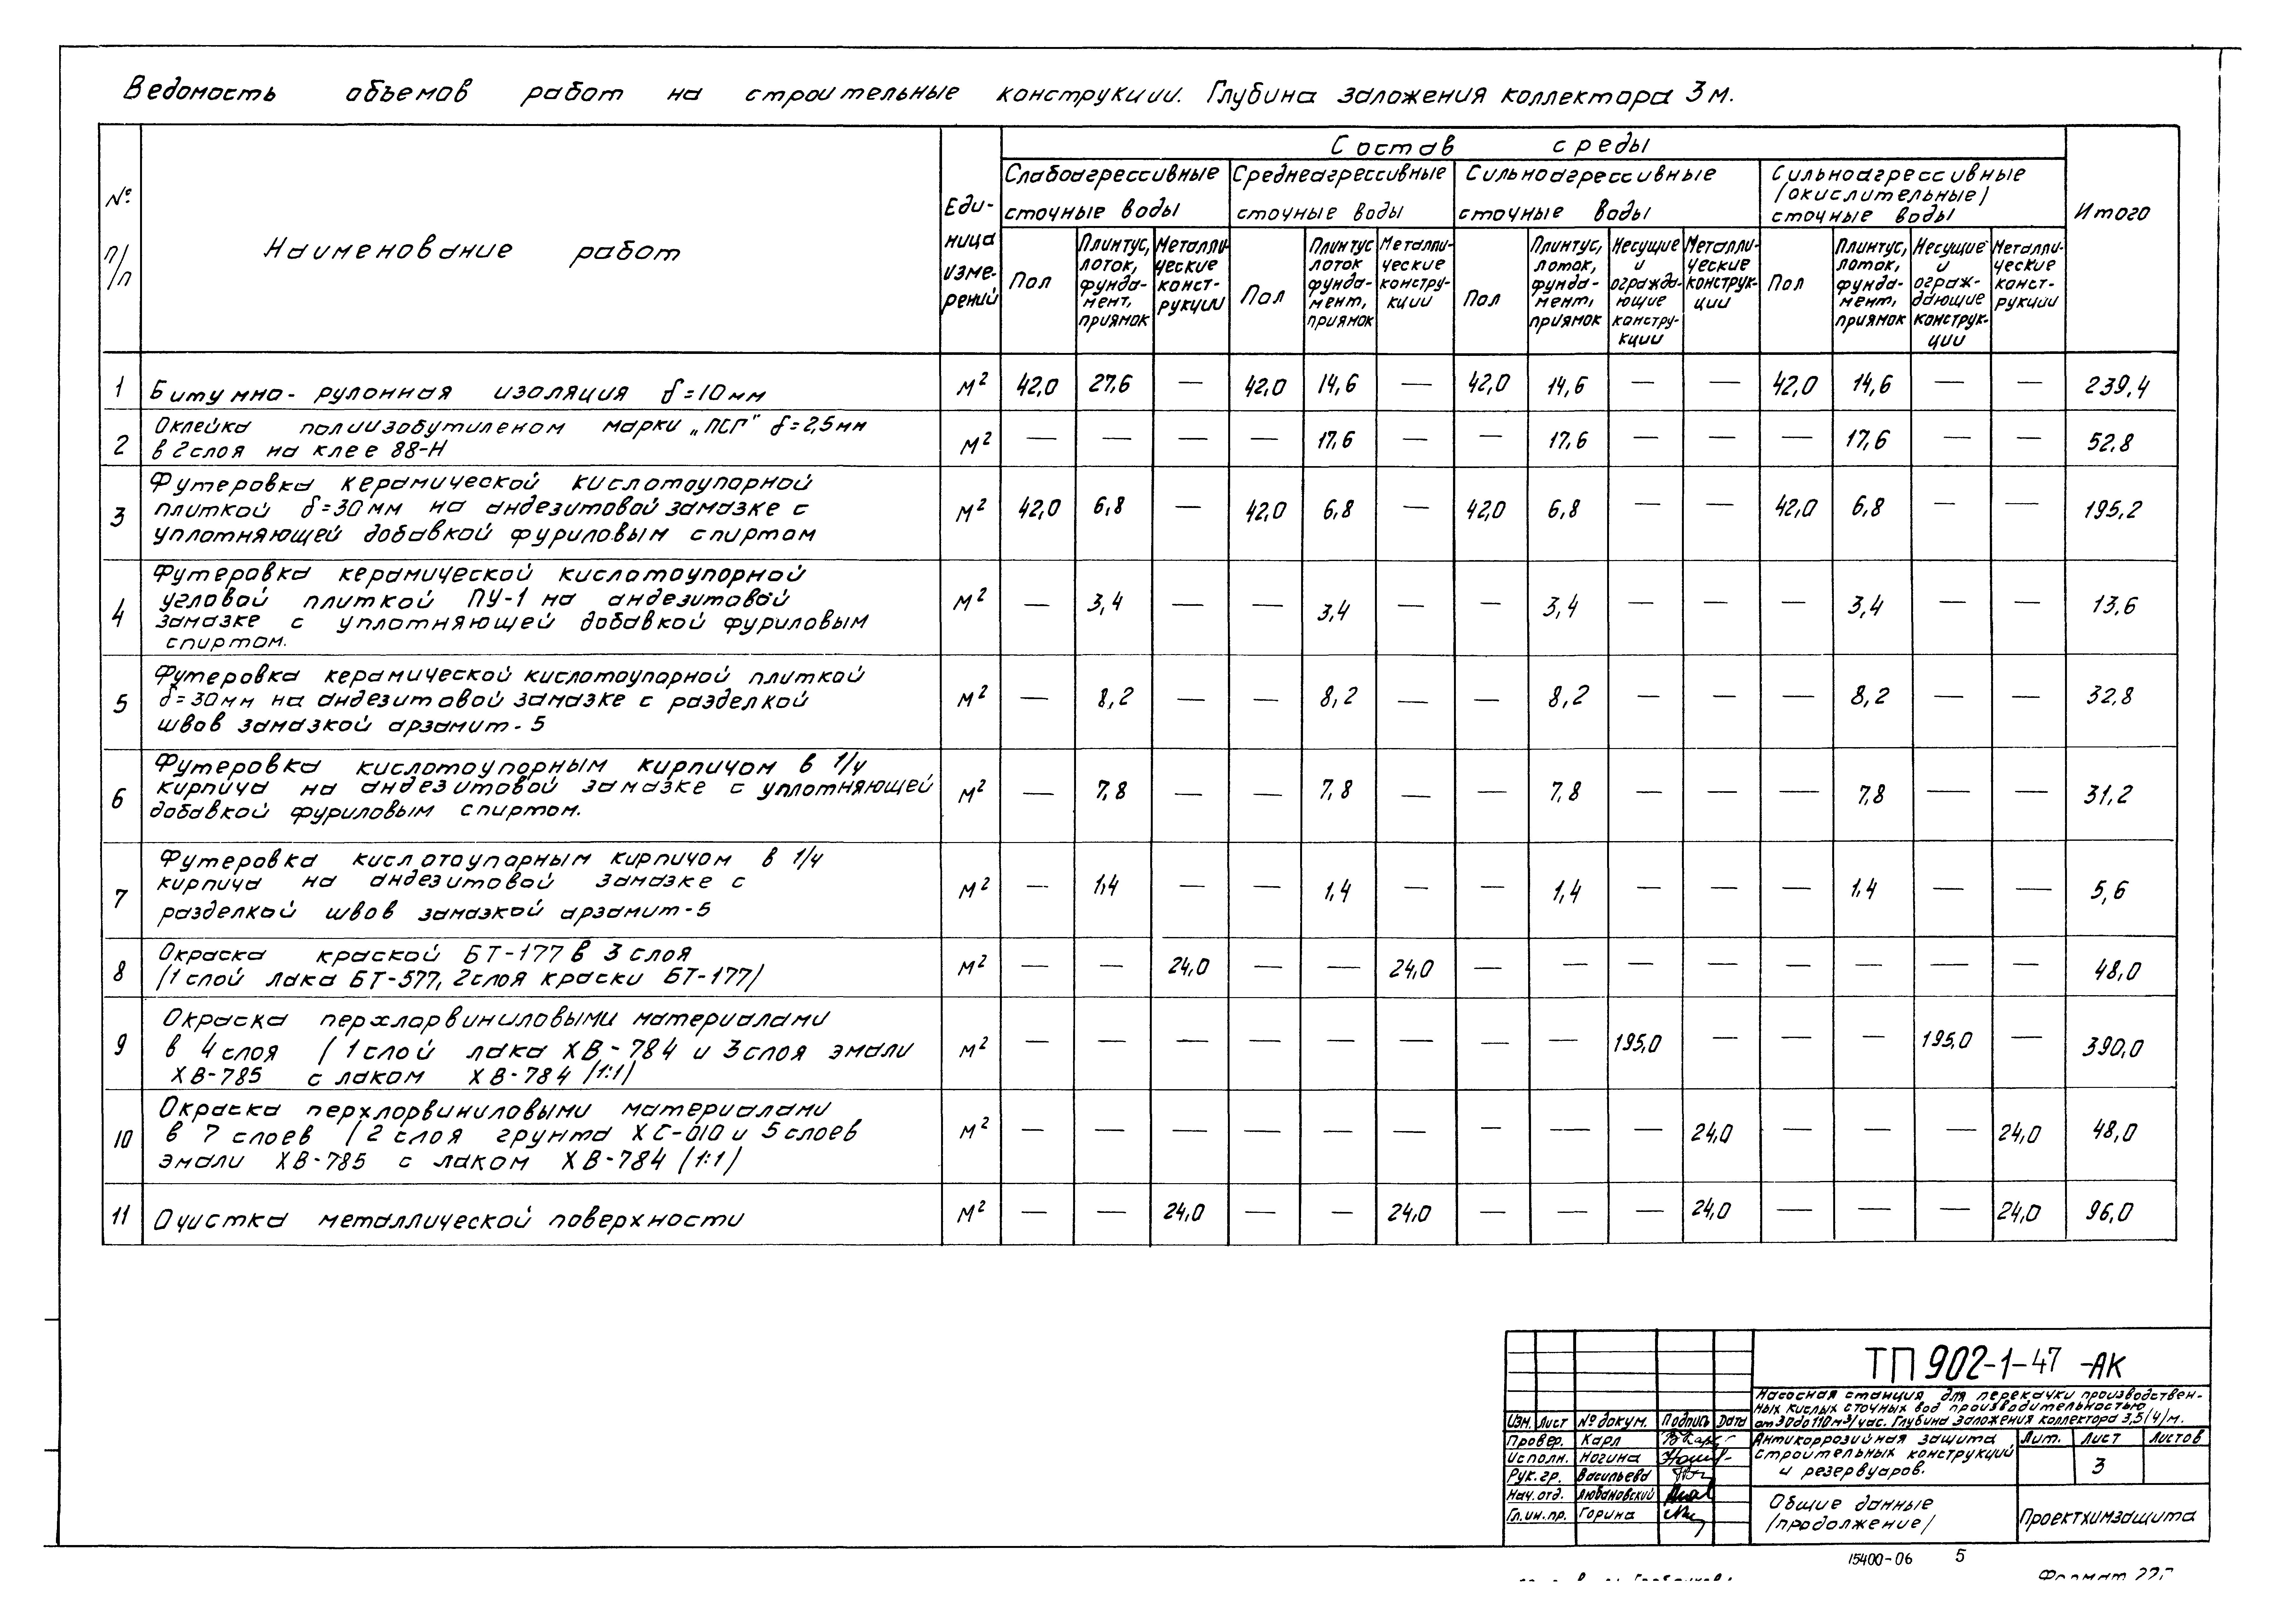 Ведомость объемов работ на строительные конструкции. Глубина заложения коллектора 3м.
№ п/п
Наименование работ
Еди-
ница
изме-
рений
Состав среды
Слабоагрессивные
сточные воды
Среднеагрессивные
сточные воды
Сильноагрессивные
сточные воды
Сильноагрессивные
(окислительные)
сточные воды
Итого
Пол
Плинтус,
лоток,
фунда-
мент,
приямок
Металли-
ческие
конст-
рукции
Пол
Плинтус
лоток
фунда-
мент,
приямок
Металли-
ческие
констру-
кции
Пол
Плинтус,
лоток,
фунда-
мент,
приямок
Несущие
и
огражда-
ющие
констру-
кции
Металли-
ческие
конструк-
ции
Пол
Плинтус,
лоток,
фунда-
мент,
приямок
Несущие
и
ограж-
дающие
конструк-
ции
Металли-
ческие
конст-
рукции
1 Битумно-рулонная изоляция δ=10мм м² 42,0 27,6 — 42,0 14,6 — 42,0 14,6 — — 42,0 14,6 — — 239,4
2 Оклейка полиизобутиленом марки „ПСГ" δ=2,5мм
в 2слоя на клее 88-Н м² — — — — 17,6 — — 17,6 — — — 17,6 — — 52,8
3 Футеровка керамической кислотоупорной
плиткой δ=30мм на андезитовой замазке с
уплотняющей добавкой фуриловым спиртом м² 42,0 6,8 — 42,0 6,8 — 42,0 6,8 — — 42,0 6,8 — — 195,2
4 Футеровка керамической кислотоупорной
угловой плиткой ПУ-1 на андезитовой
замазке с уплотняющей добавкой фуриловым
спиртом. м² — 3,4 — — 3,4 — — 3,4 — — — 3,4 — — 13,6
5 Футеровка керамической кислотоупорной плиткой
δ=30мм на андезитовой замазке с разделкой
швов замазкой арзамит-5 м² — 8,2 — — 8,2 — — 8,2 — — — 8,2 — — 32,8
6 Футеровка кислотоупорным кирпичом в 1/4
кирпича на андезитовой замазке с уплотняющей
добавкой фуриловым спиртом. м² — 7,8 — — 7,8 — — 7,8 — — — 7,8 — — 31,2
7 Футеровка кислотоупорным кирпичом в 1/4
кирпича на андезитовой замазке с
разделкой швов замазкой арзамит-5 м² — 1,4 — — 1,4 — — 1,4 — — — 1,4 — — 5,6
8 Окраска краской БТ-177 в 3 слоя
(1 слой лака БТ-577, 2слоя краски БТ-177) м² — — 24,0 — — 24,0 — — — — — — — — 48,0
9 Окраска перхлорвиниловыми материалами
в 4 слоя (1 слой лака ХВ-784 и 3слоя эмали
ХВ-785 с лаком ХВ-784 (1:1) м² — — — — — — — — 195,0 — — — 195,0 — 390,0
10 Окраска перхлорвиниловыми материалами
в 7 слоев (2 слоя грунта ХС-010 и 5 слоев
эмали ХВ-785 с лаком ХВ-784 (1:1) м² — — — — — — — — — 24,0 — — — 24,0 48,0
11 Очистка металлической поверхности м² — — 24,0 — — 24,0 — — — 24,0 — — — 24,0 96,0
ТП 902-1-47 -АК
Насосная станция для перекачки производствен-
ных кислых сточных вод производительностью
от 30 до 110 м³/час. Глубина заложения коллектора 3,5(4)м.
Изм. Лист № докум. Подпись Дата
Провер. Карл
Исполн. Ногина
Рук.гр. Васильева
Нач.отд. Любановский
Гл.ин.пр. Горина
Антикоррозийная защита
строительных конструкций
и резервуаров.
Лит. Лист Листов
3
Общие данные
(продолжение)
Проектхимзащита
15400-06 5
Формат